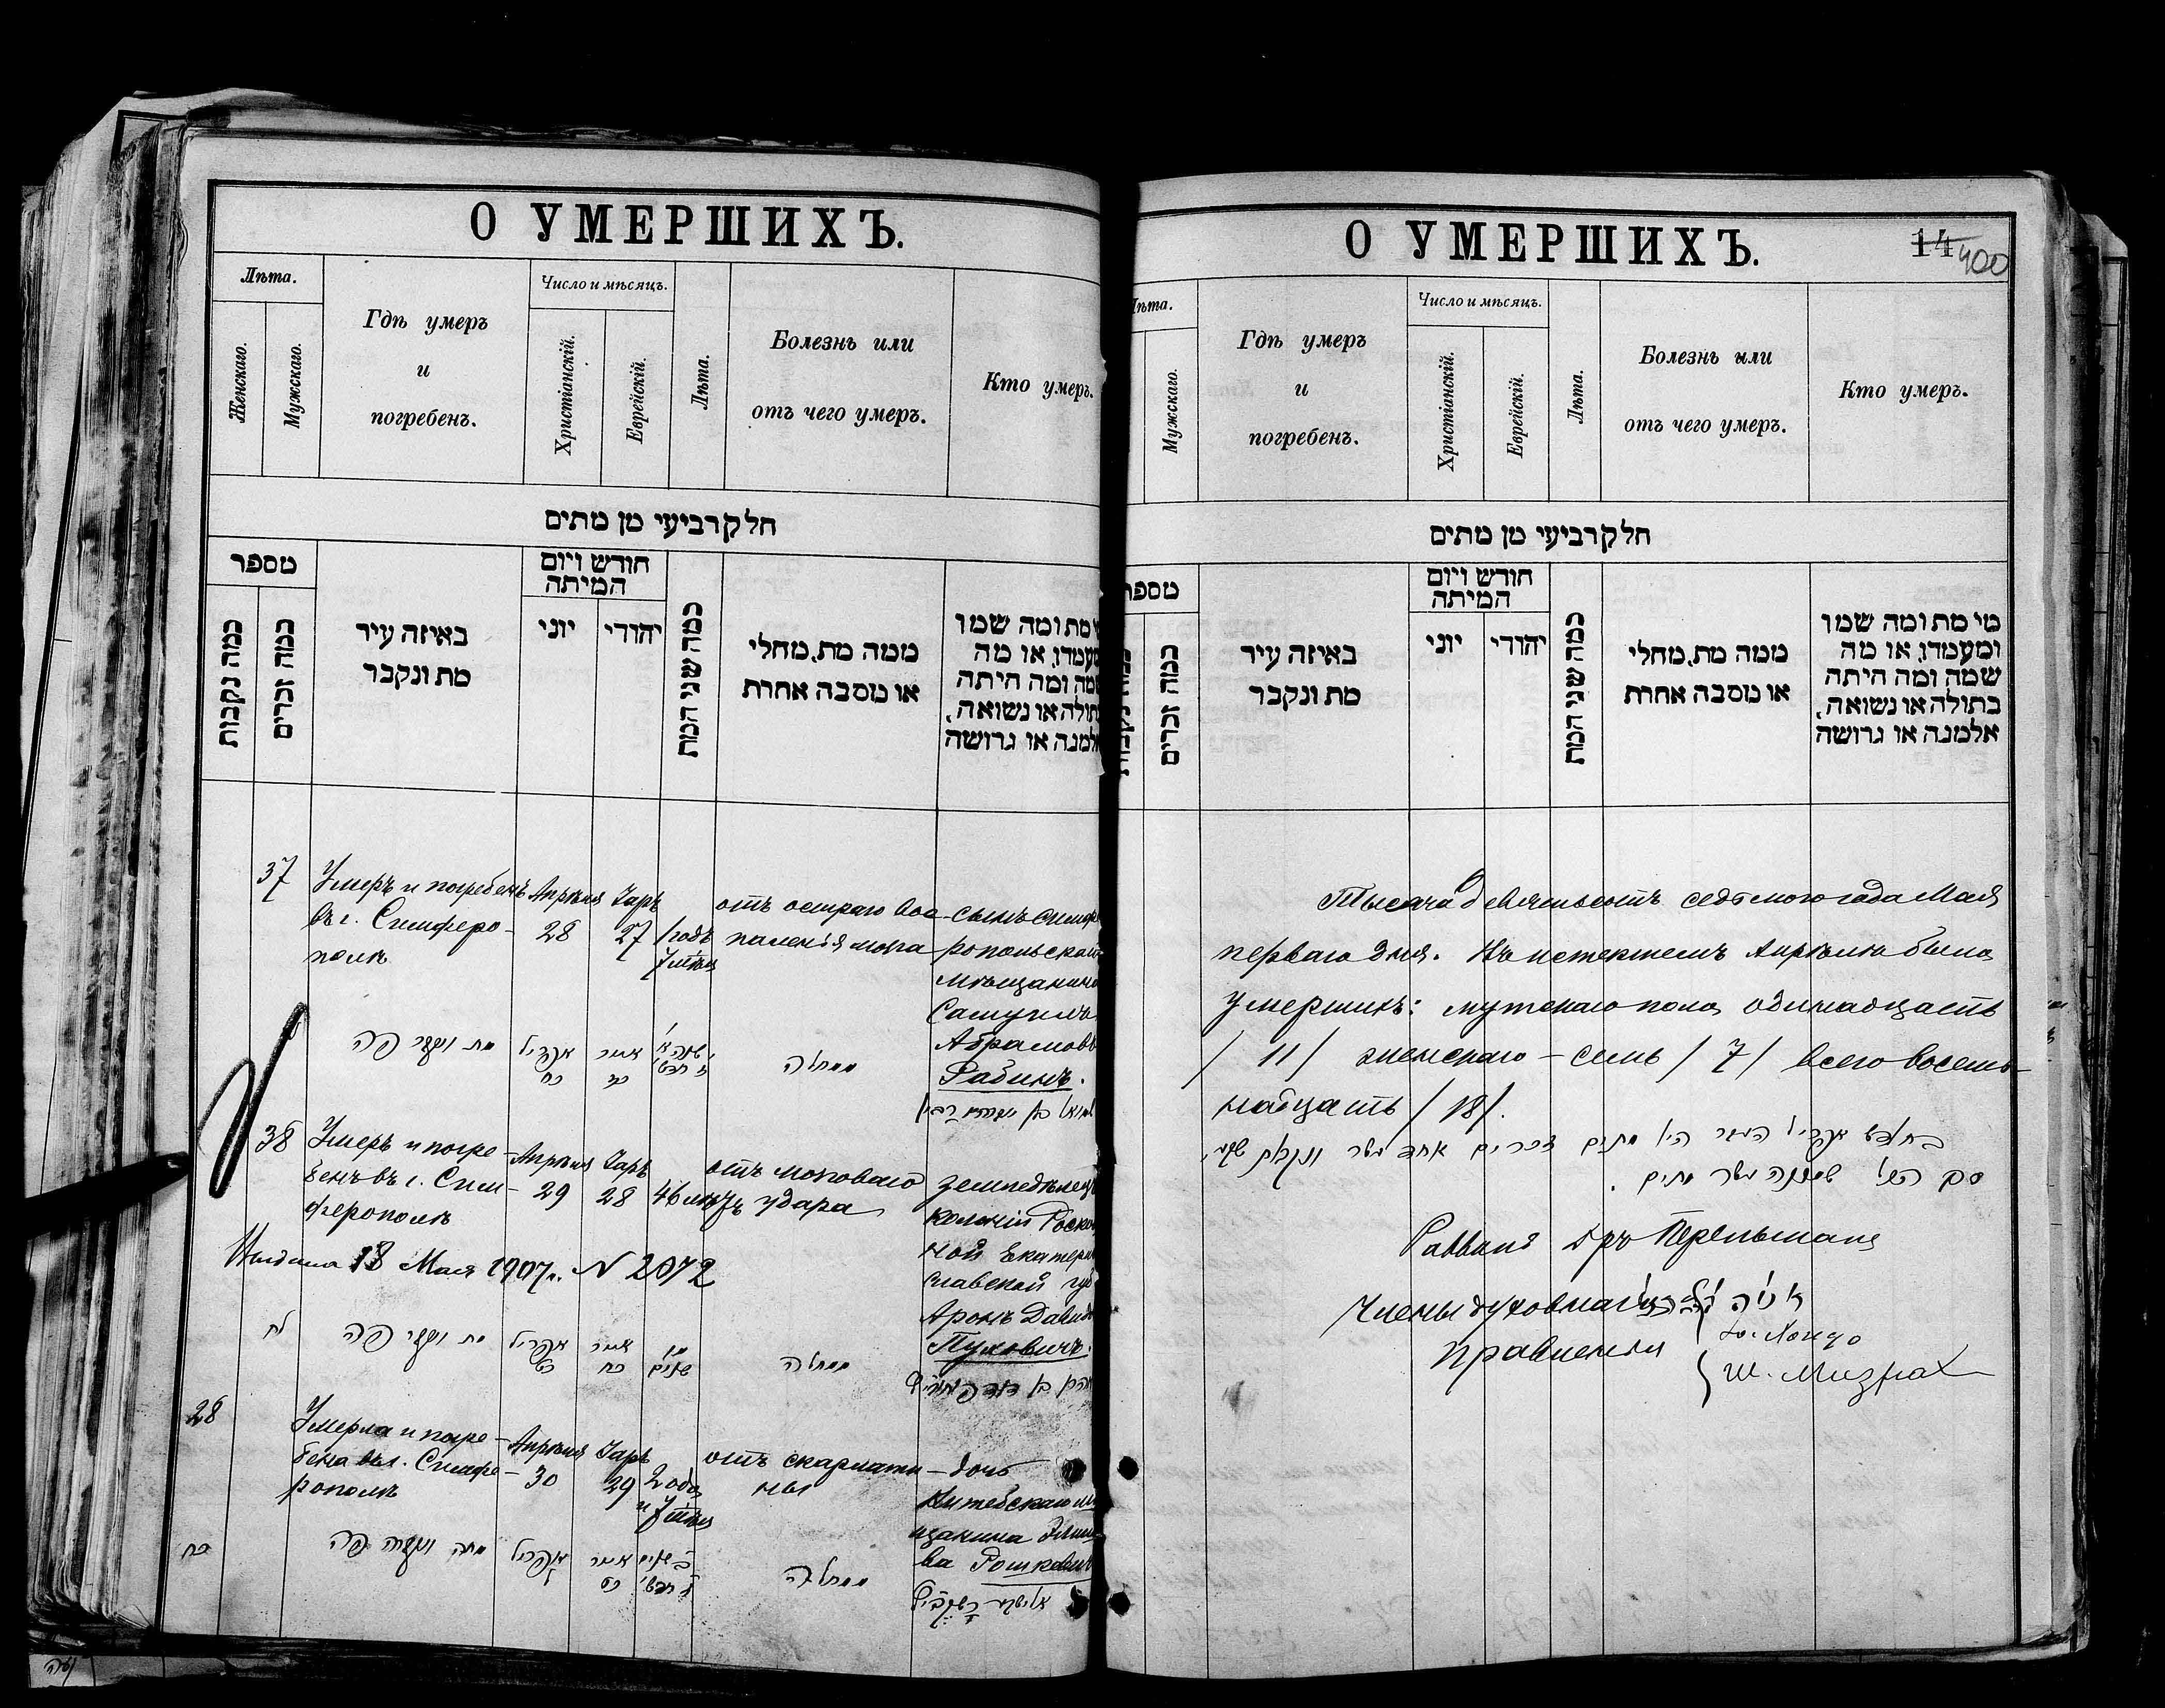 О УМЕРШИХЪ.
Лѣта.
Женскаго.
Мужскаго.
Гдѣ умеръ
и
погребенъ.
Число и мѣсяцъ.
Христіанскій.
Еврейскій.
Лѣта.
Болезнь или
отъ чего умеръ.
Кто умеръ.
חלק רביעי מן מתים
מספר
כמה נקבות
כמה זכרים
באיזה עיר
מת ונקבר
חודש ויום
המיתה
יוני
יהודי
כמה שני המת
ממה מת, מחלי
או מסבה אחרת
מת ומה שמו
ומה היתה
או נשואה,
או גרושה
37
Умеръ и погребенъ
въ г. Симферо-
полѣ
Апрѣля
28
Іаръ
27
1 годъ
7 мѣсяц
отъ остраго вос-
паленія мозга
сынъ Симфе
ропольскаго
мѣщанина
Самуилъ
Абрамовъ
Рабинъ.
מת ונקבר פה
אפריל
כח
אייר
כז
ממחלה
38
Умеръ и погре-
бенъ въ г. Сим-
ферополѣ
Апрѣля
29
Іаръ
28
46 лѣтъ
отъ мозговаго
удара
земледѣлецъ
колоніи Роско
ной Екатерин
славской губ
Аронъ Давид
Пуховичъ.
Выдана 13 Мая 1907 г. N 2072
לח
מת ונקבר פה
אפריל
כט
אייר
כח
מו
שנים
ממחלה
28
Умерла и погре-
бена въ г. Симфе-
рополѣ
Апрѣля
30
Іаръ
29
2 года
и 7 мѣсяц
отъ скарлати-
ны
дочь
Витебскаго мѣ
щанина
ва Рошкевич
כח
מתה ונקברה פה
אפריל
ל
אייר
כט
ב שנים
ז חדשי
ממחלה
О УМЕРШИХЪ.
14 400
Лѣта.
Мужскаго.
Гдѣ умеръ
и
погребенъ.
Число и мѣсяцъ.
Христіанскій.
Еврейскій.
Лѣта.
Болезнь или
отъ чего умеръ.
Кто умеръ.
חלק רביעי מן מתים
מספר
כמה זכרים
באיזה עיר
מת ונקבר
חודש ויום
המיתה
יוני
יהודי
כמה שני המת
ממה מת, מחלי
או מסבה אחרת
מי מת ומה שמו
ומעמדו, או מה
שמה ומה היתה
בתולה או נשואה,
אלמנה או גרושה
Тысяча девятьсотъ седьмого года Мая
перваго дня. Въ истекшемъ Апрѣлѣ было
умершихъ: мужскаго пола одинадцать
/ 11 / женскаго – семь / 7 / всего восем-
надцать / 18 /.
סך הכל שמונה עשר מתים.
Раввинъ Д-ръ Перельманъ
Члены духовнаго
правленія
Ш. Мизрах